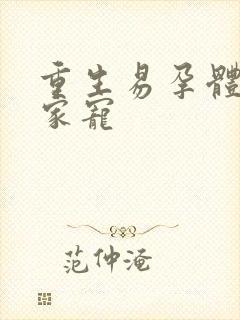 重生易孕體
家寵
范仲淹